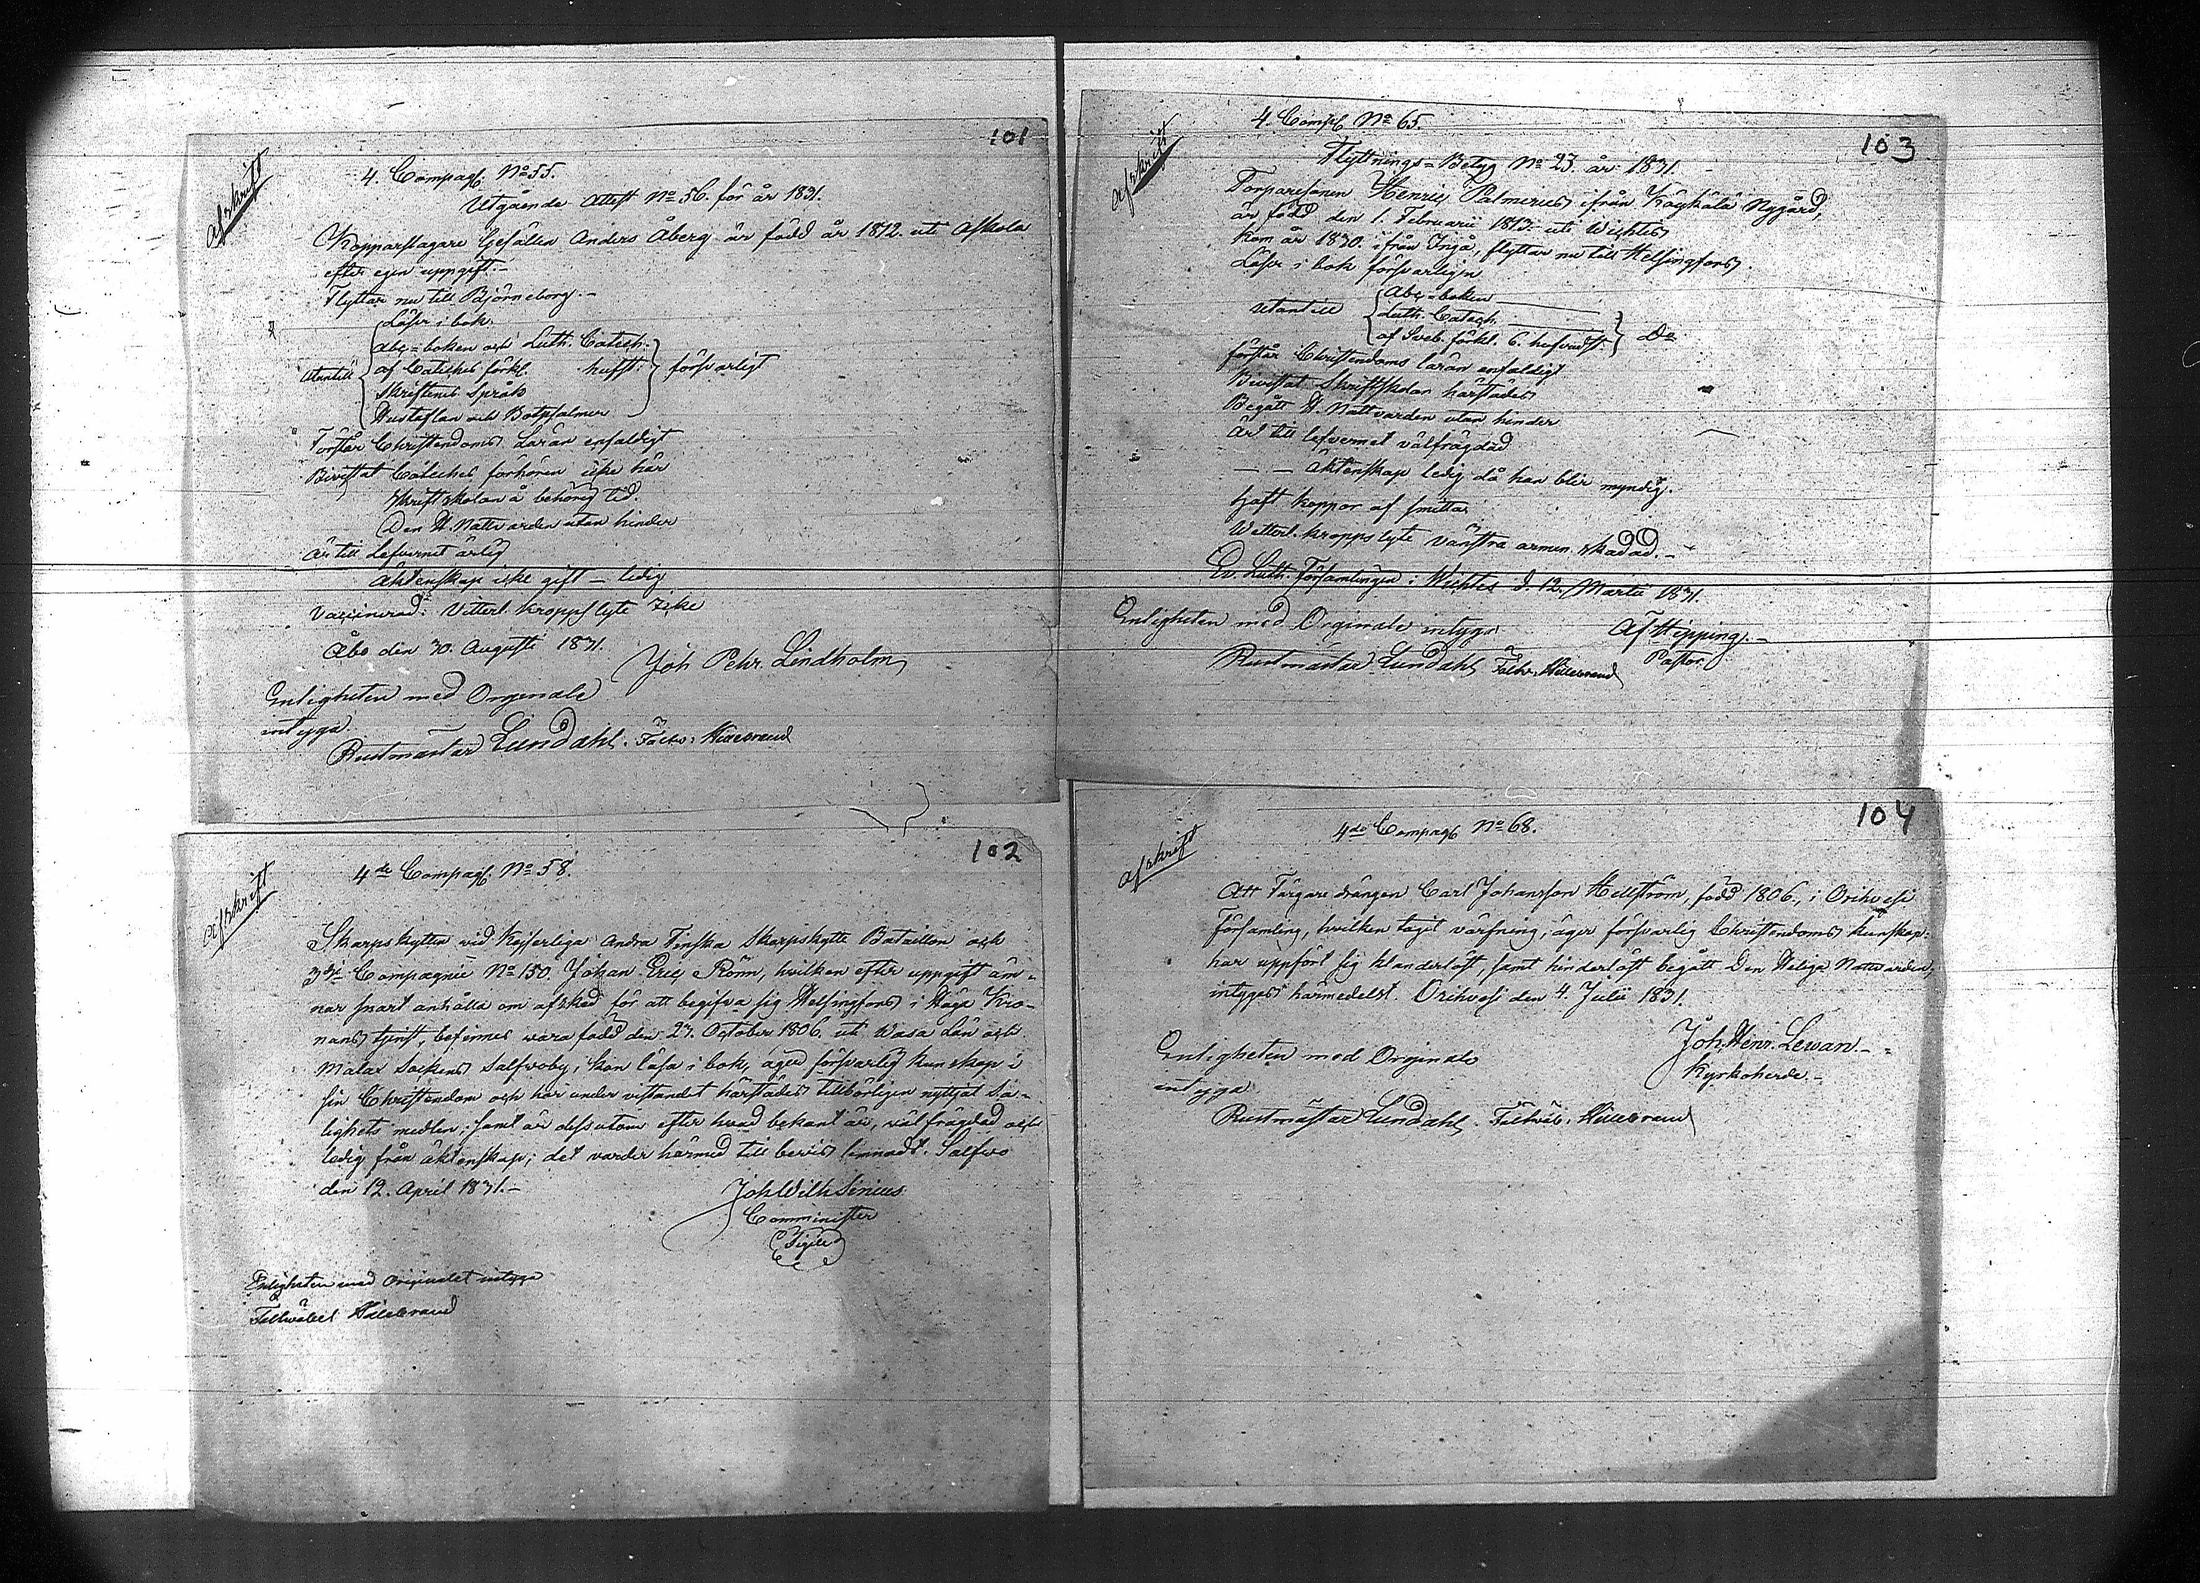 101
Afskrift
4. Compag. No 55.
Utgående Attest No 56. för år 1831.
Kopparslagare Gesällen Anders Åberg är född år 1812. uti Askola
efter egen uppgift.-
Flyttar nu till Björneborg.-
Läser i bok.
Abc=boken och Luth. Catech.
utantill af Catches förkl. hufft: försvarligt
Skriftenes Språk
Hustaflan och Botpsalmer
Förstår Christendoms Läran enfaldigt
Bivistat Catechis förhören icke här
Skriftskolan å behörig tid.
Den H. Nattvarden utan hinder
Är till Lefvernet ärlig
Äktenskap icke gift - ledig
Vaccinerad: Vitterl. kroppslyte Icke
Åbo den 30. Augusti 1831.
Joh Pehr Lindholm
Enligheten med Orginale
intyga
Rustmästar Lundahl. Hillebrand
102
Afskrift
4de Compag. No 58.
Skarpskytten vid Kejserliga Andra Finska Skarpskytte Bataillon och
3dje Compagnie No 150. Johan Eric Rönn, hvilken efter uppgift äm-
nar snart anhålla om afsked för att begifva sig Helsingfors i Höga Kro-
nans tjenst, befinnes vara född den 27. October 1806. uti Wasa Län och
Malax Sockens Salfvoby, kan läsa i bok, äger försvarlig kunskap i
sin Christendom och har under vistandet härstädes tillbörligen nyttjat Sa-
lighets medlen: samt är dessutom efter hvad bekant är, välfrägdad och
ledig från äktenskap; det varder härmed till bevis lemnadt. Salfvo
den 12. April 1831.-
Joh Wilh Sirius
Comminister
Sigill
Enligheten med Originalet intyga
Fältväbel Hillebrand
103
Afskrift
4. Comp. No 65.
Flyttnings=Betyg No 23. år 1831.
Torparesonen Henric Palmerus ifrån Köykälä Nygård,
är född den 1. Februarii 1813. uti Wichtis
kom år 1830. ifrån Ingå, flyttar nu till Helsingfors.
Läser i bok försvarligen
Abc=boken
utantill Luth. Catech.
af Sveb. förkl. 6. hufvudst. Do
förstår Christendoms läran enfaldigt
Bivistat Skriftskolan härstädes
Begått H. Nattvarden utan hinder
Är till lefvernet välfrägdad
- - äktenskap ledig då han blir myndig.
Haft koppor af smitta
Wetterl. kroppslyte vänstra armen skadad.-
Ev. Luth. Församlingen i Wichtis d. 12. Martii 1831.
Af Hipping.-
Pastor
Enligheten med Orginale intyga
Rustmästar Lundahl Hillebrand
104
Afskrift
4de Compag No 68.
Att Färgare drängen Carl Johansson Hellström, född 1806, i Orihvesi
Församling, hvilken tagit värfning, äger försvarlig Christendoms kunskap:
har uppfört sig klanderlöst, samt hinderlöst begått Den Heliga Nattvarden,
intygas härmedelst. Orihvesi den 4. Julii 1831.
Joh. Henr. Lewan.-
Kyrkoherde.-
Enligheten med Orginale
intyga
Rustmästar Lundahl. Fältväb. Hillebrand